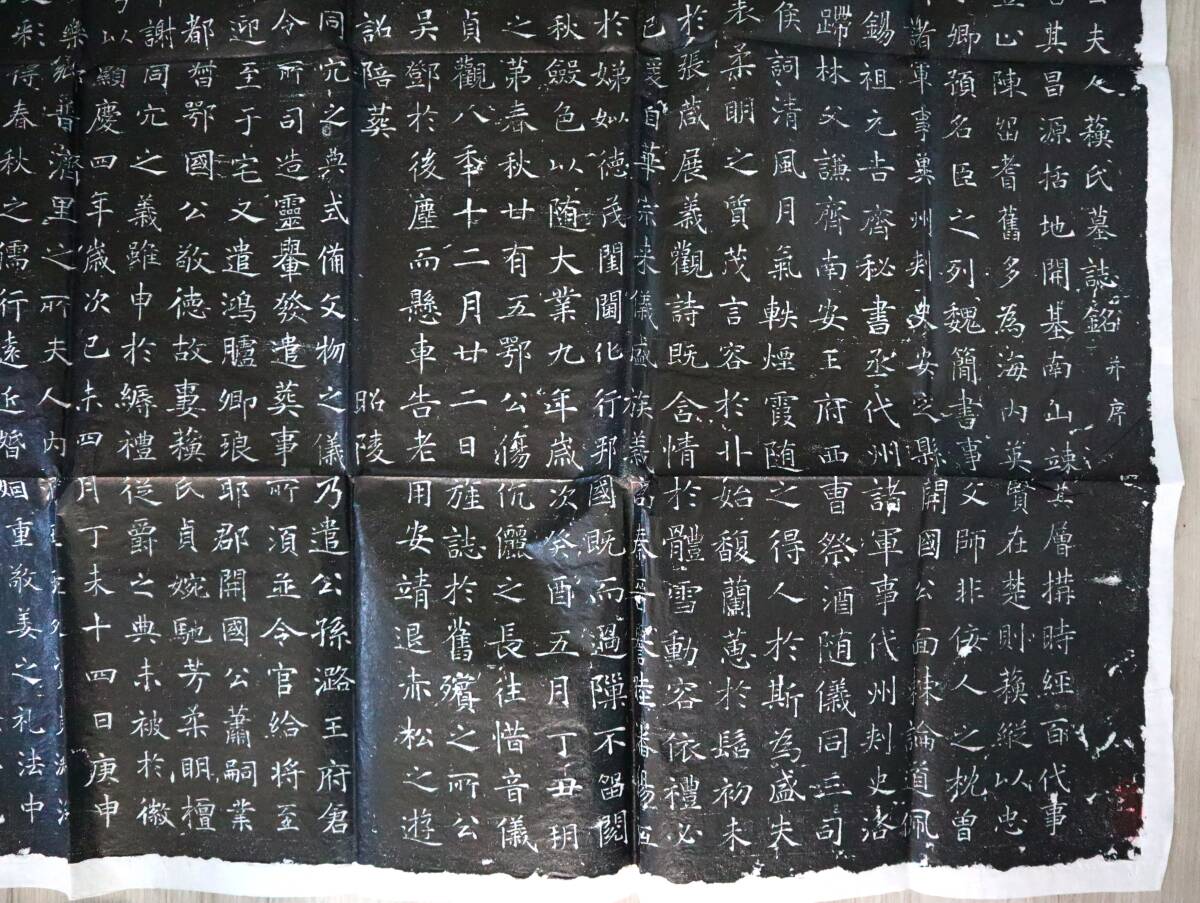 夫人蘓氏墓誌銘 并序
其昌源括地開基南山竦其層搆時經百代事
陳留耆舊多為海內英賢在楚則蘓縱以忠
卿預名臣之列魏簡書事父師非佞人之枕曾
諸軍事冀州刾史安之縣開國公面陳論道佩
錫祖元吉齊秘書丞代州諸軍事代州刾史洛
林父謙齊南安王府西曹祭酒随儀同三司
侯詞清風月氣軼煙霞随之得人於斯為盛夫
表柔明之質茂言容於丱始馥蘭蕙於髫初未
於張葴展義觀詩既含情於體雪動容依禮必
已爰自華宗来儀盛族義
於娣姒德茂閨閫化行邦國既而過隟不留閱
秋色以随大業九年歲次癸酉五月丁丑朔
之第春秋廿有五鄂公傷伉儷之長往惜音儀
貞觀八年十二月廿二日旌誌於舊殯之所公
吳鄧於後塵而懸車告老用安靖退赤松之遊
詔陪葬 昭陵
同穴之典式備文物之儀乃遣公孫潞王府倉
令所司造靈轝發遣葬事所湏並令官給将至
迎至于宅又遣鴻臚卿琅耶郡開國公蕭嗣業
都督鄂國公敬德故妻蘓氏貞婉馳芳柔明擅
謝同穴之義雖申於縟禮從爵之典未被於徽
以顯慶四年歲次己未四月丁未十四日庚申
樂鄉普濟里之所夫人內
来得春秋之儒行遠近婚姻重敬姜之礼法中